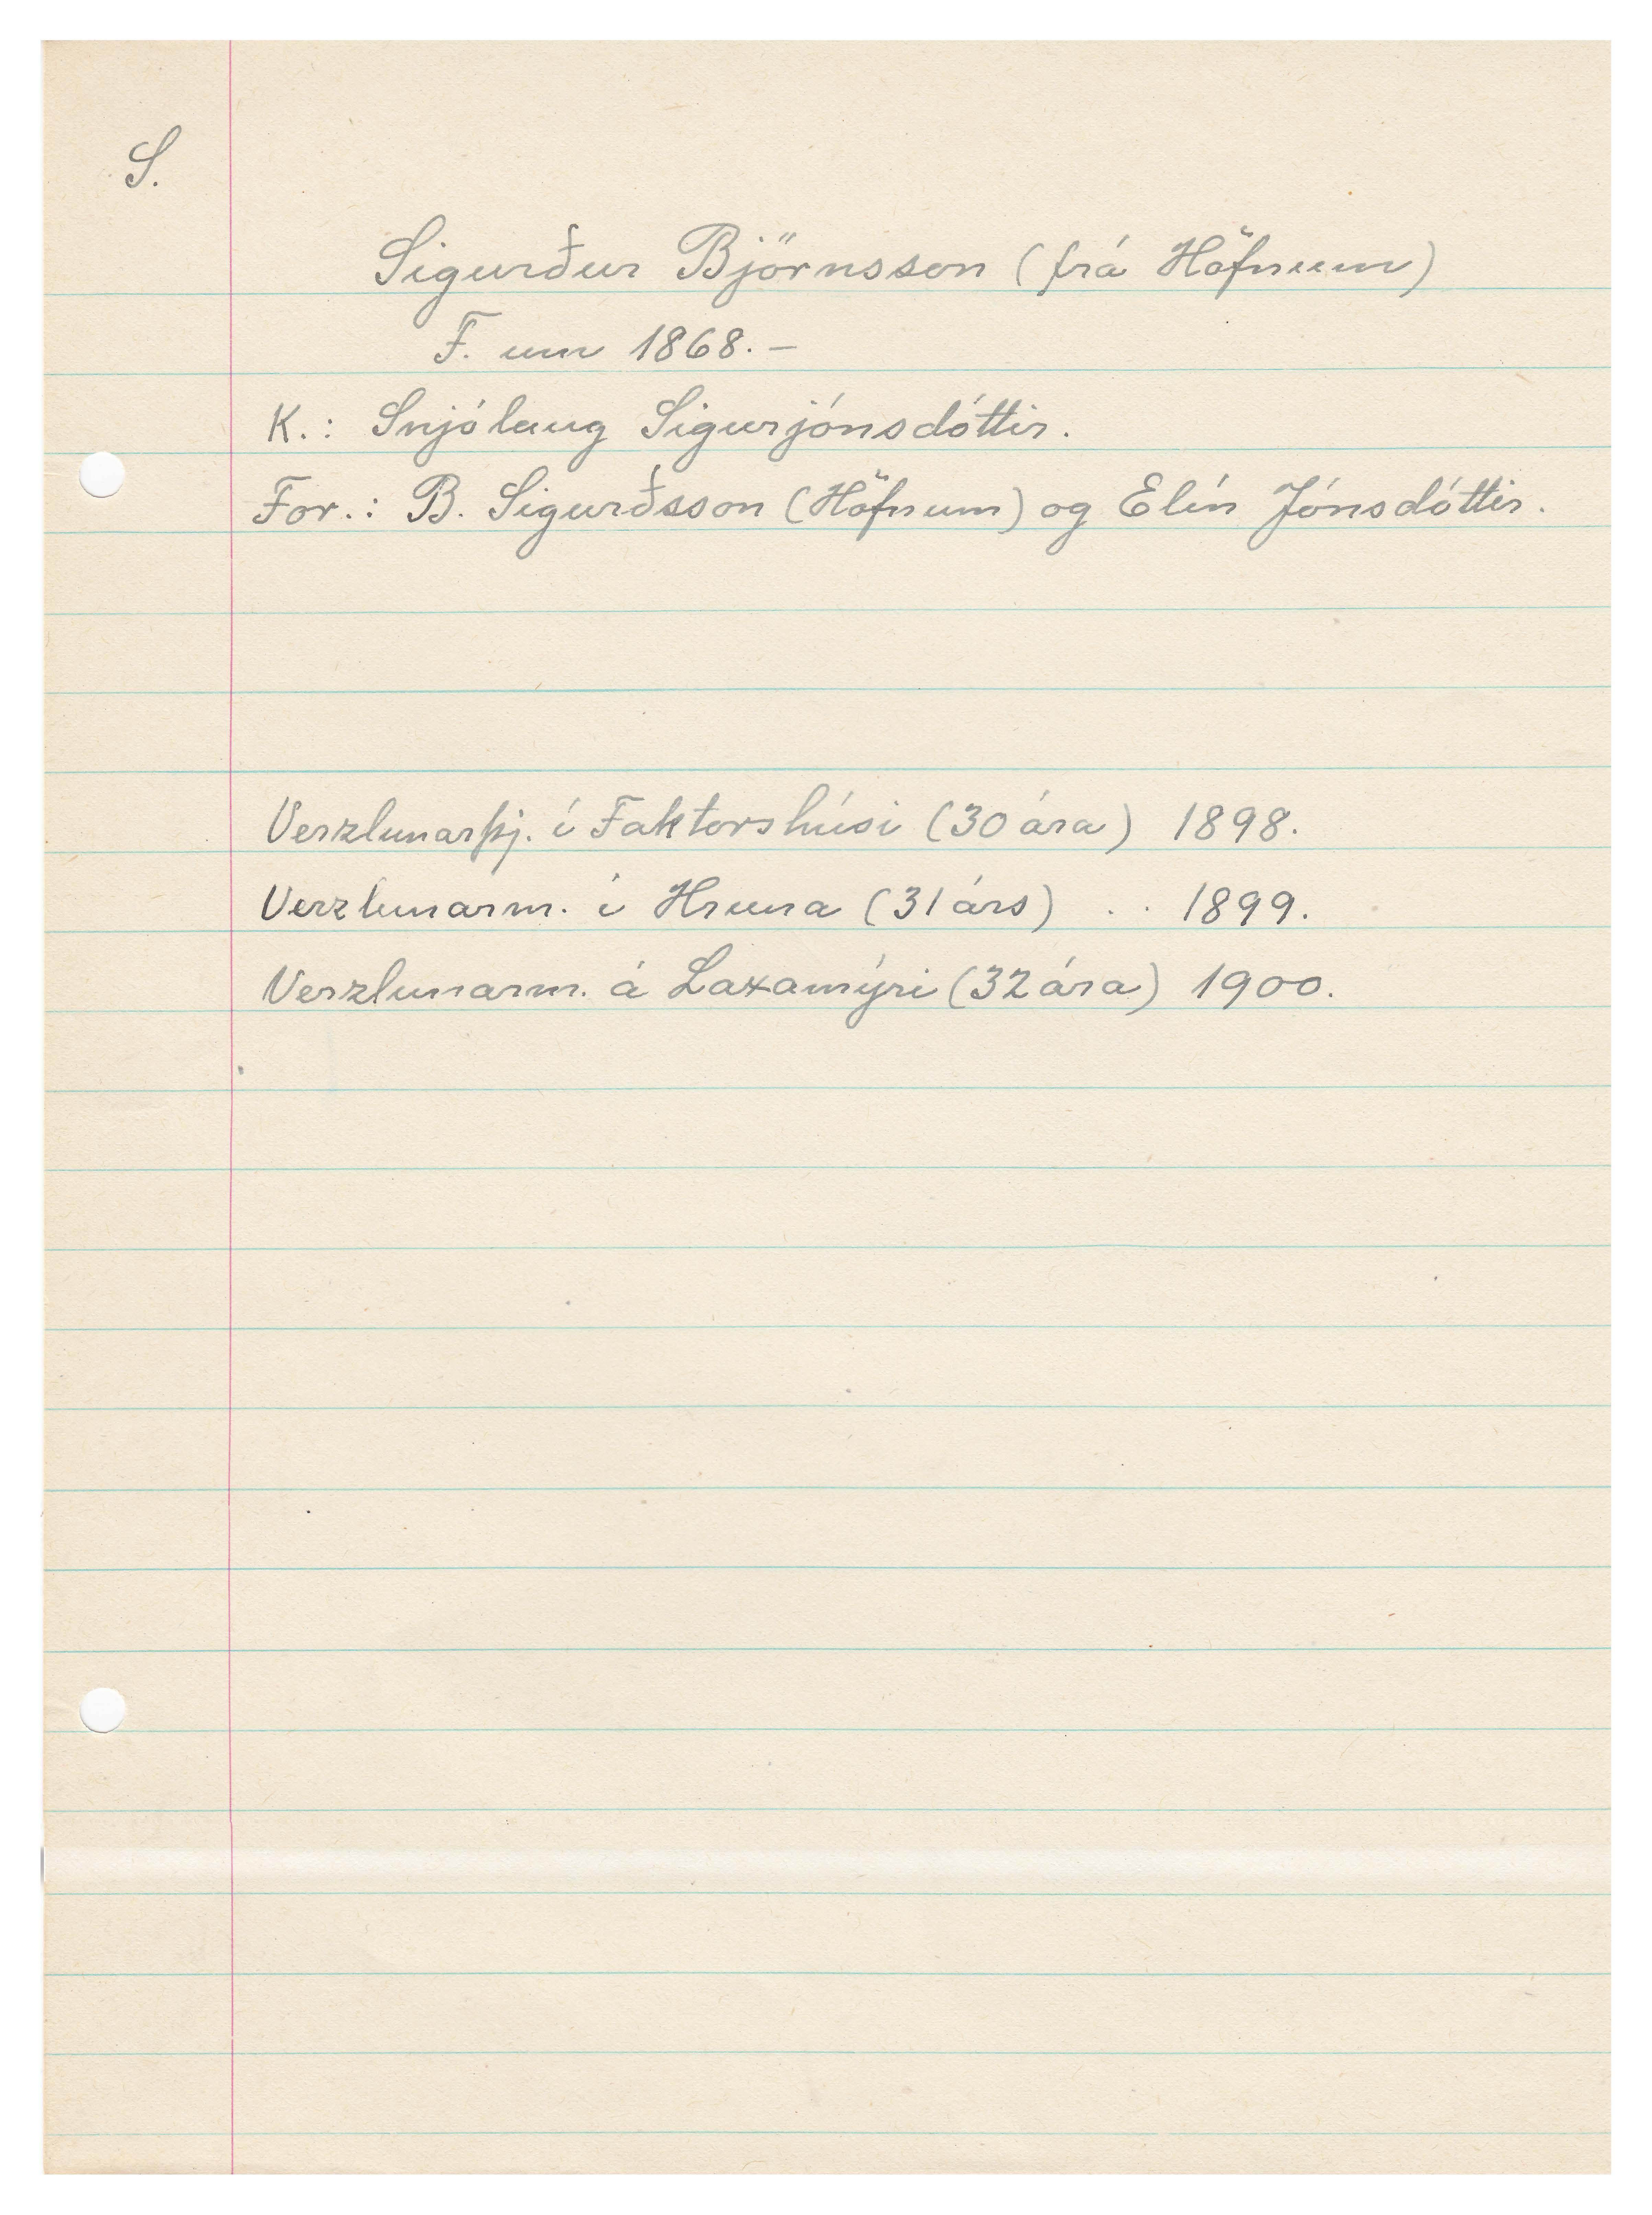 S.
Sigurður Björnsson (frá Höfnum)
F. um 1868. –
K.: Snjólaug Sigurjónsdóttir.
For.: B. Sigurðsson (Höfnum) og Elín Jónsdóttir.
Verzlunarþj. í Faktorshúsi (30 ára) 1898.
Verzlunarm. í Hruna (31 árs) . . 1899.
Verzlunarm. á Laxamýri (32 ára) 1900.